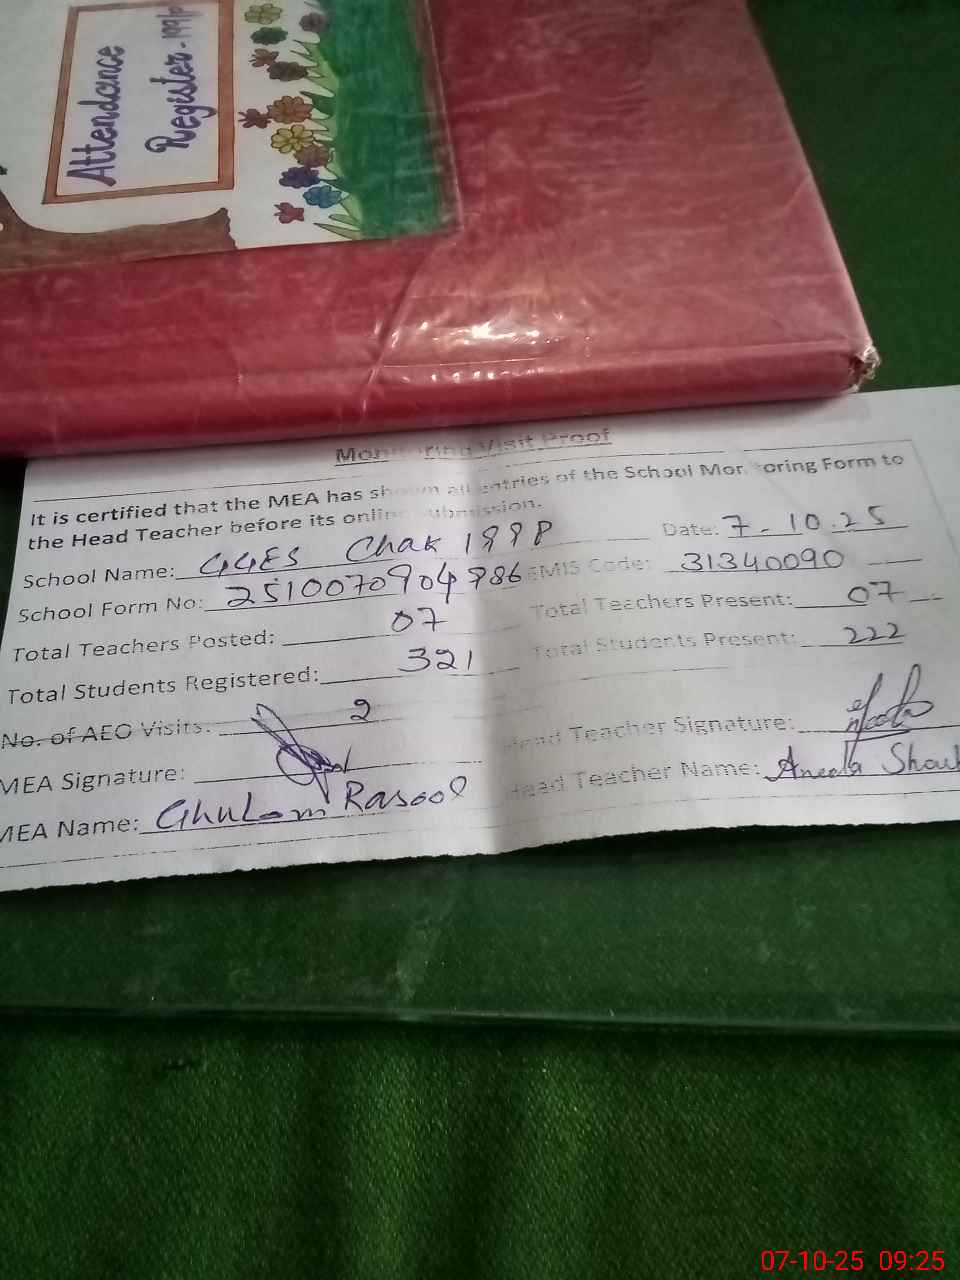 Attendance
Register - 199/P
Monitoring Visit Proof
It is certified that the MEA has shown all entries of the School Monitoring Form to
the Head Teacher before its online submission.
School Name: GGES Chak 199P Date: 7-10-25
School Form No: 2510070904786 EMIS Code: 31340090
Total Teachers Posted: 07 Total Teachers Present: 07
Total Students Registered: 321 Total Students Present: 222
No. of AEO Visits: 2
MEA Signature: Head Teacher Signature:
MEA Name: Ghulam Rasool Head Teacher Name: Aneela
07-10-25 09:25